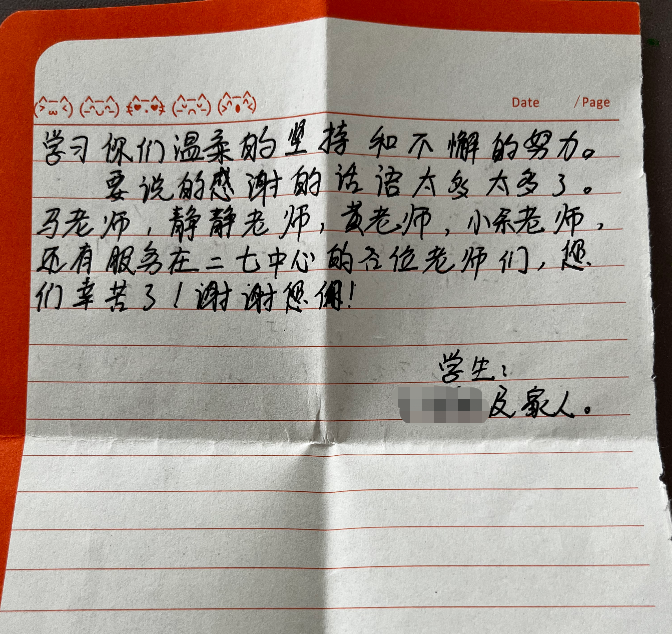 Date /Page
学习你们温柔的坚持和不懈的努力。
要说的感谢的话语太多太多了。
马老师，静静老师，黄老师，小余老师，
还有服务在二七中心的各位老师们，您
们辛苦了！谢谢您们！
学生：
及家人。